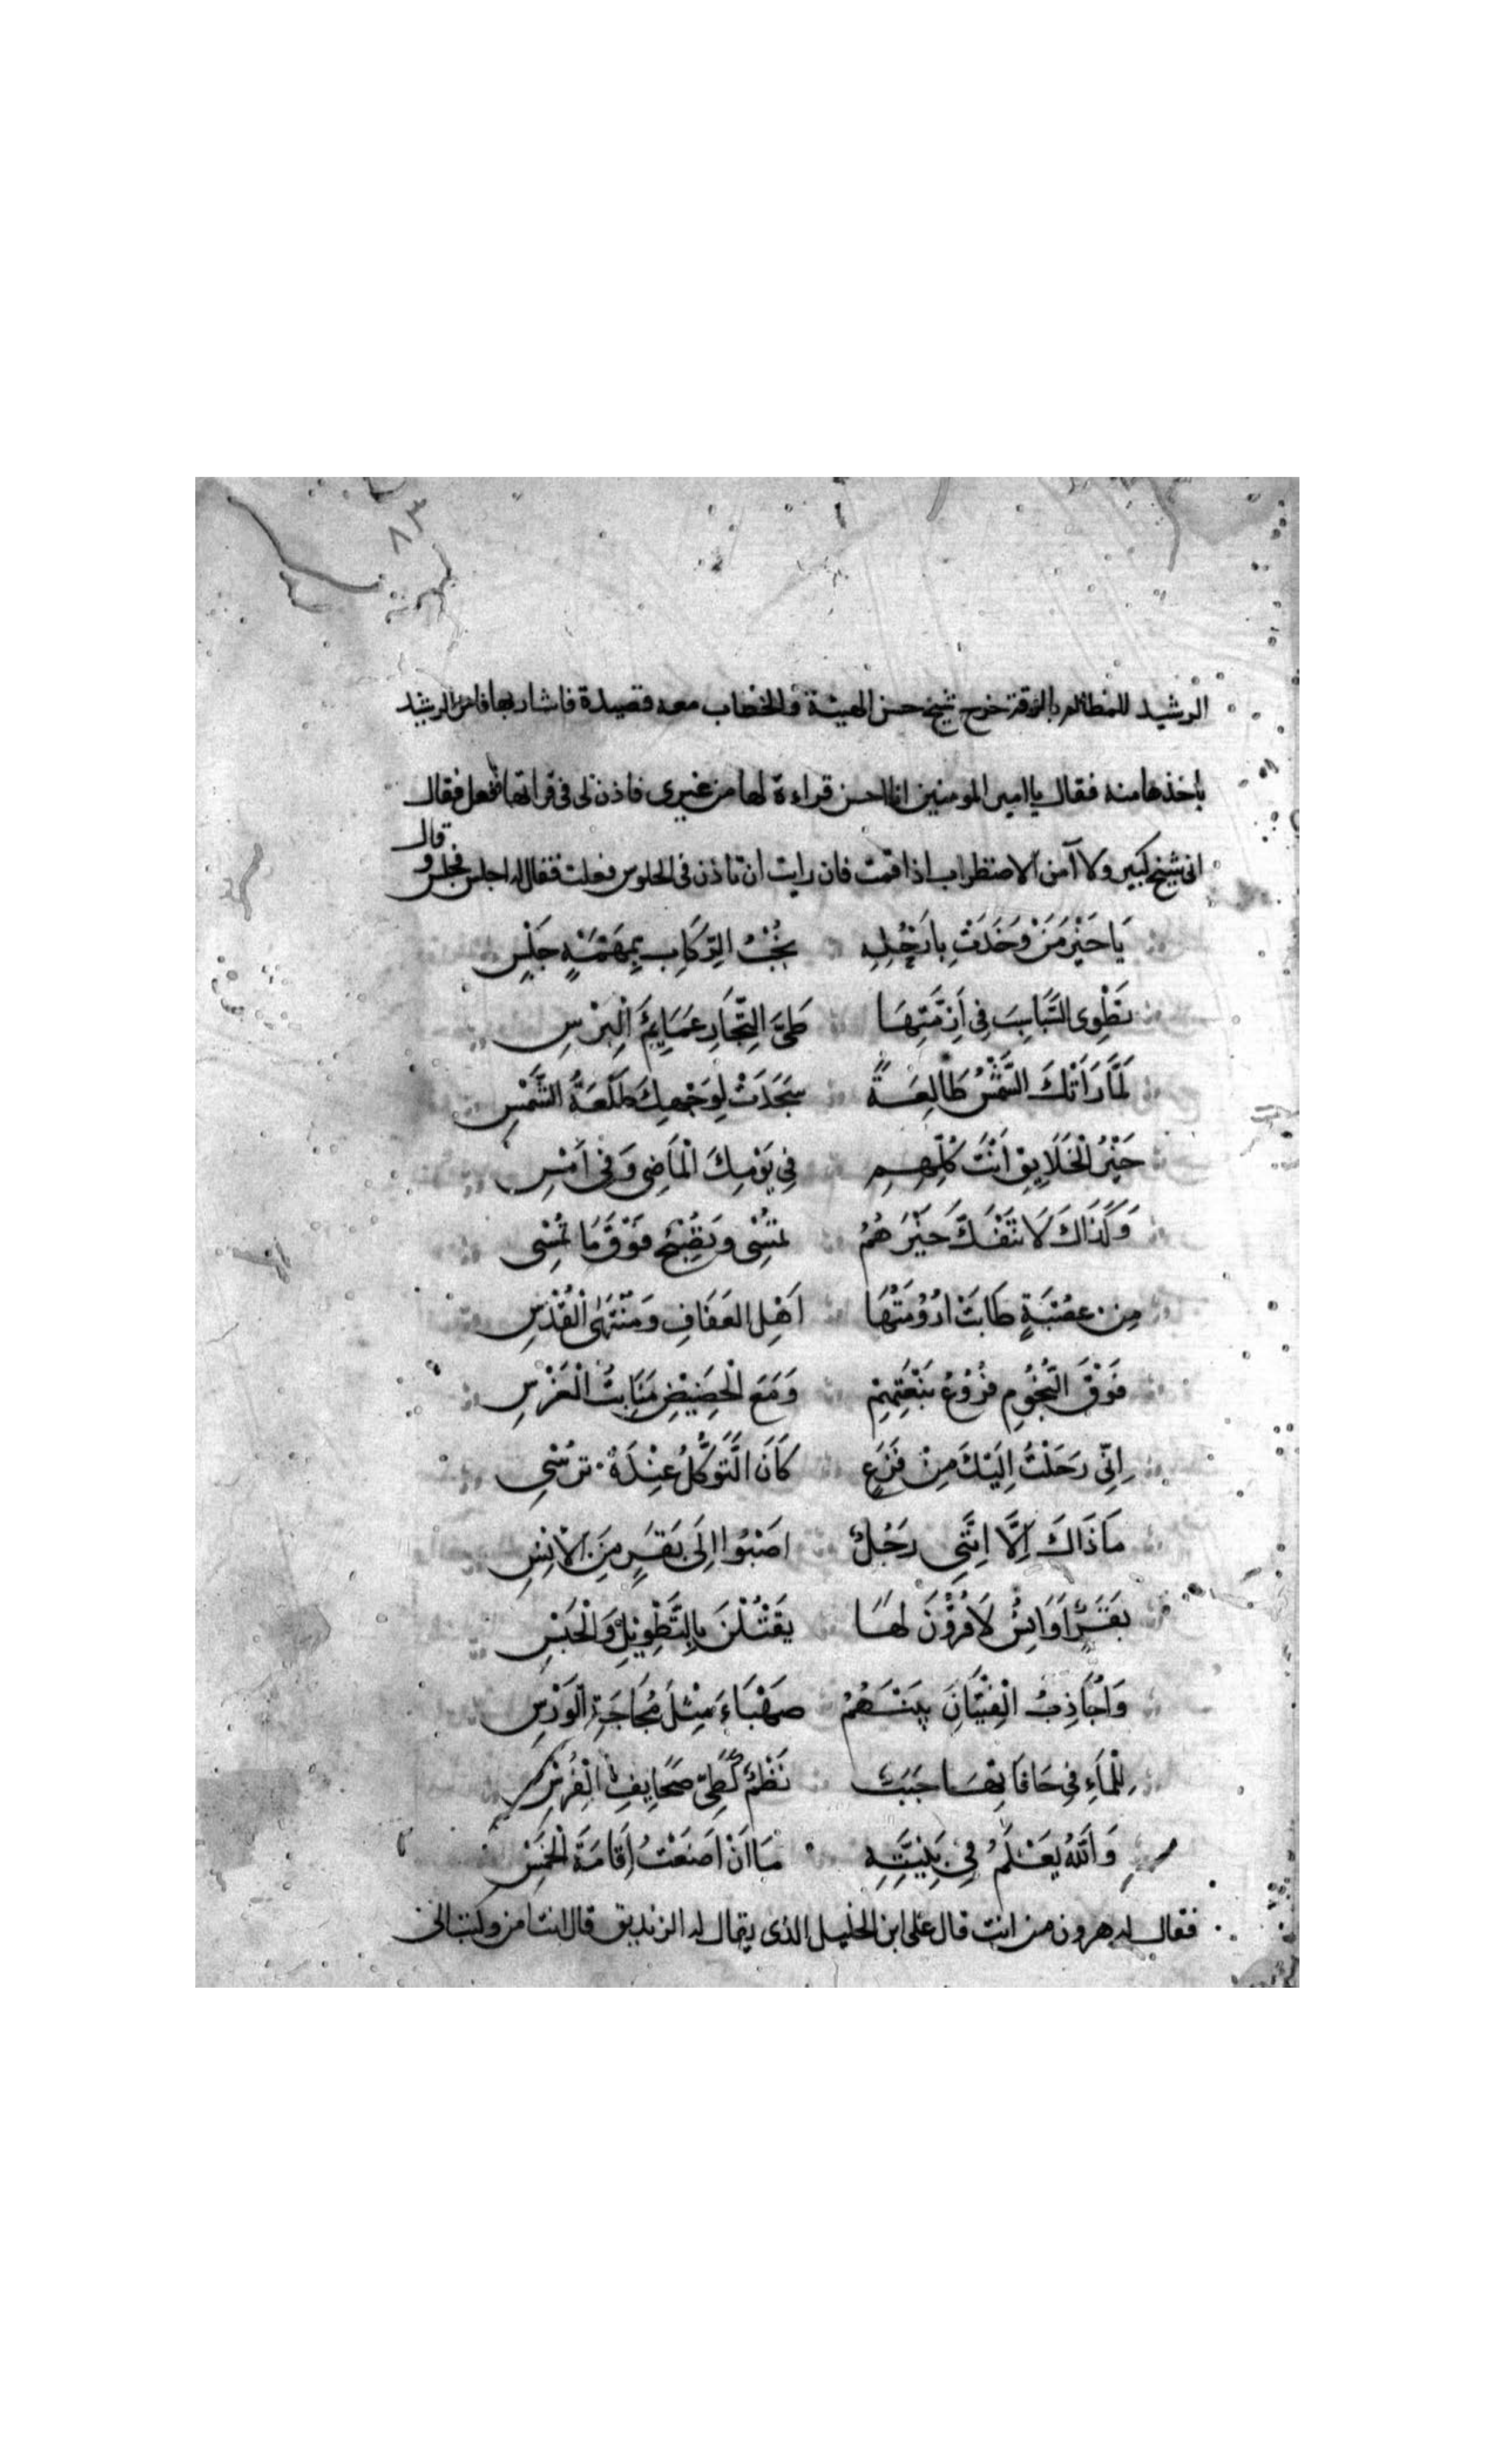 ٨٣
الرشيد للمظالم بالرقة خرج شيخ حسن الهيئة والخضاب معه قصيدة فاشار بها فامر الرشيد
باخذها منه فقال يا امير المومنين انا احسن قراءة لها من غيرى فاذن لى فى قراتها ففعل فقال
انى شيخ كبير ولا آمن الاضطراب اذا قمت فان رايت ان تاذن فى الجلوس فعلت فقال له اجلس فجلس و
قال
يَا خَيْرَ مَنْ وَخَدَتْ بِارْحُلِهِ نُجُبُ الرِّكَابِ بِمَهْمَهٍ جَلْسِ
تَطْوِى السَّبَاسِبَ فِى اَزِمَّتِهَا طَىَّ التِّجَارِ عَمَايِمَ الْبِرْسِ
لَمَّا رَاَتْكَ الشَّمْسُ طَالِعَةً سَجَدَتْ لِوَجْهِكَ طَلْعَةُ الشَّمْسِ
خَيْرُ الْخَلَايِقِ اَنْتَ كُلِّهِمِ فِى يَوْمِكَ الْمَاضِى وَفِى اَمْسِ
وَكَذَاكَ لَا تَنْفَكُّ خَيْرَهُمُ تُمْسِى وَتُصْبِحُ فَوْقَ مَا تُمْسِى
مِن عُصْبَةٍ طَابَتْ ارُوْمَتُهَا اَهْلِ العَفَافِ وَمُنْتَهَى الْقُدْسِ
فَوْقَ النُّجُوْمِ فُرُوْعُ نَبْعَتِهِمْ وَمَعَ الْحَضِيْضِ مَنَابِتُ الْغَرْسِ
اِنِّى رَحَلْتُ اِلَيْكَ مِنْ فَزَعٍ كَانَ التَّوَكُّلُ عِنْدَهُ تُرْسِى
مَا ذَاكَ اِلَّا اِنَّنِى رَجُلٌ اصْبُوا اِلَى بَقَرٍ مِنَ الْاِنْسِ
بَقَرٌ اَوَانِسُ لَا قُرُوْنَ لَهَا يَقْتُلْنَ بِالتَّطْوِيْلِ وَالْحَبْسِ
وَاُجَاذِبُ الْفِتْيَانَ بَيْنَهُمُ صَهْبَاءَ مِثْلَ مُجَاجَةِ الْوَرْسِ
لِلْمَاءِ فِى حَافَاتِهَا حَبَبٌ نَظْمٌ كَطَىِّ صَحَايِفِ الْفُرْسِ
وَاللّٰهُ يَعْلَمُ فِى بَنِيَّتِهِ مَا اَنْ اَضَعْتُ اِقَامَةَ الْخَمْسِ
فقال له هرون من انت قال على ابن الخليل الذى يقال له الزنديق قال انت امن وكتب الى